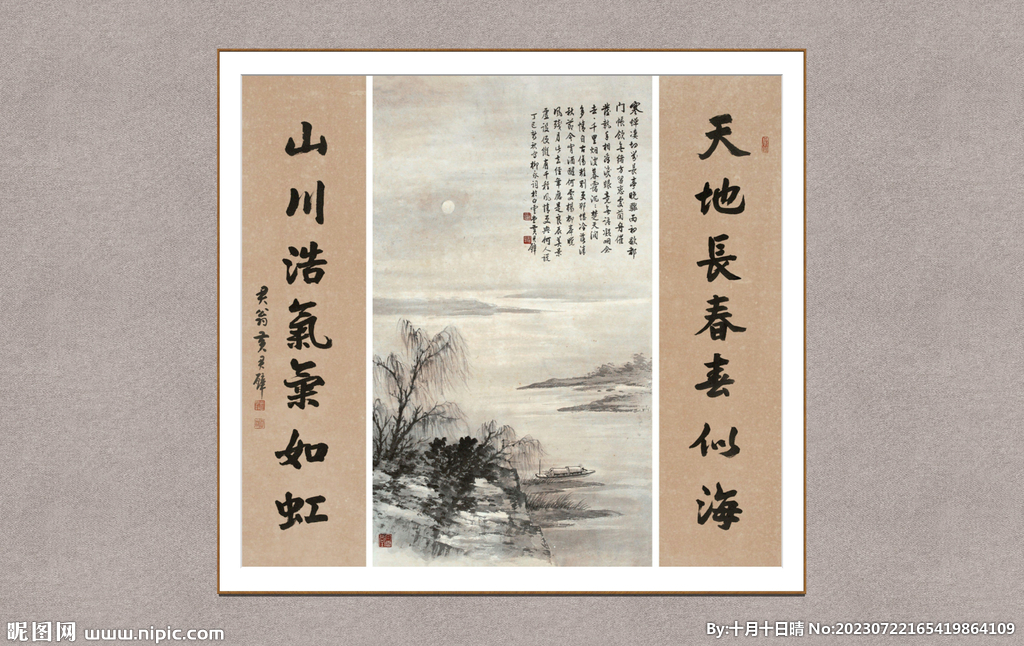 天地長春春似海
寒蟬淒切對長亭晚驟雨初歇都
門帳飲無緒方留戀處蘭舟催
發執手相看淚眼竟無語凝咽念
去去千里烟波暮靄沉沉楚天闊
多情自古傷離別更那堪冷落清
秋節今宵酒醒何處楊柳岸曉
風殘月此去經年應是良辰美景
虛設便縱有千種風情更與何人說
丁巳秋寫柳永詞於白雲堂黄君璧
山川浩氣氣如虹
君翁黄君璧
昵图网 www.nipic.com
By:十月十日晴 No:20230722165419864109